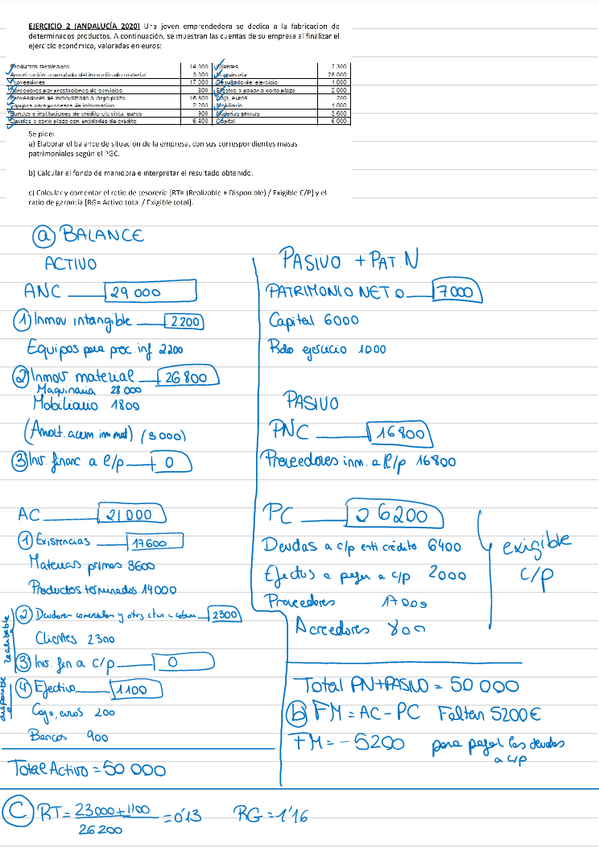 EJERCICIO 2 (ANDALUCÍA 2020) Una joven emprendedora se dedica a la fabricación de
determinados productos. A continuación, se muestran las cuentas de su empresa al finalizar el
ejercicio económico, valoradas en euros:
Productos terminados 14 000 Clientes 2 300
Amortización acumulada del inmovilizado material 3 000 Maquinaria 28 000
Proveedores 17 000 Resultado de ejercicio 1 000
Acreedores por prestaciones de servicios 800 Efectos a pagar a corto plazo 2 000
Proveedores de inmovilizado a largo plazo 16 800 Caja, euros 200
Equipos para procesos de información 2 200 Mobiliario 1 800
Bancos e instituciones de crédito c/c vista, euros 900 Materias primas 3 600
Deudas a corto plazo con entidades de crédito 6 400 Capital 6 000
Se pide:
a) Elaborar el balance de situación de la empresa, con sus correspondientes masas
patrimoniales según el PGC.
b) Calcular el fondo de maniobra e interpretar el resultado obtenido.
c) Calcular y comentar el ratio de tesorería [RT= (Realizable + Disponible) / Exigible C/P] y el
ratio de garantía [RG= Activo total / Exigible total].
a BALANCE
ACTIVO
ANC 29 000
1 Inmov intangible 2200
Equipos para proc inf 2200
2 Inmov material 26 800
Maquinaria 28 000
Mobiliario 1800
(Amort. acum inm mat) (3 000)
3 Inv. financ a l/p 0
AC 21 000
1 Existencias 17600
Materias primas 3600
Productos terminados 14000
2 Deudores comerciales y otras ctas a cobrar 2300
Clientes 2300
3 Inv. fin a c/p 0
4 Efectivo 1100
Caja, euros 200
Bancos 900
realizable
disponible
Total Activo = 50 000
PASIVO + PAT. N
PATRIMONIO NETO 7000
Capital 6000
Rdo ejercicio 1000
PASIVO
PNC 16 800
Proveedores inm. a l/p 16800
PC 26200
Deudas a c/p enti crédito 6400
Efectos a pagar a c/p 2000
Proveedores 17000
Acreedores 800
exigible
c/p
Total PN+PASIVO = 50 000
b FM = AC - PC Faltan 5200€
FM = - 5200 para pagar las deudas
a c/p
C RT = 23000+1100 / 26 200 = 0'13 RG = 1'16